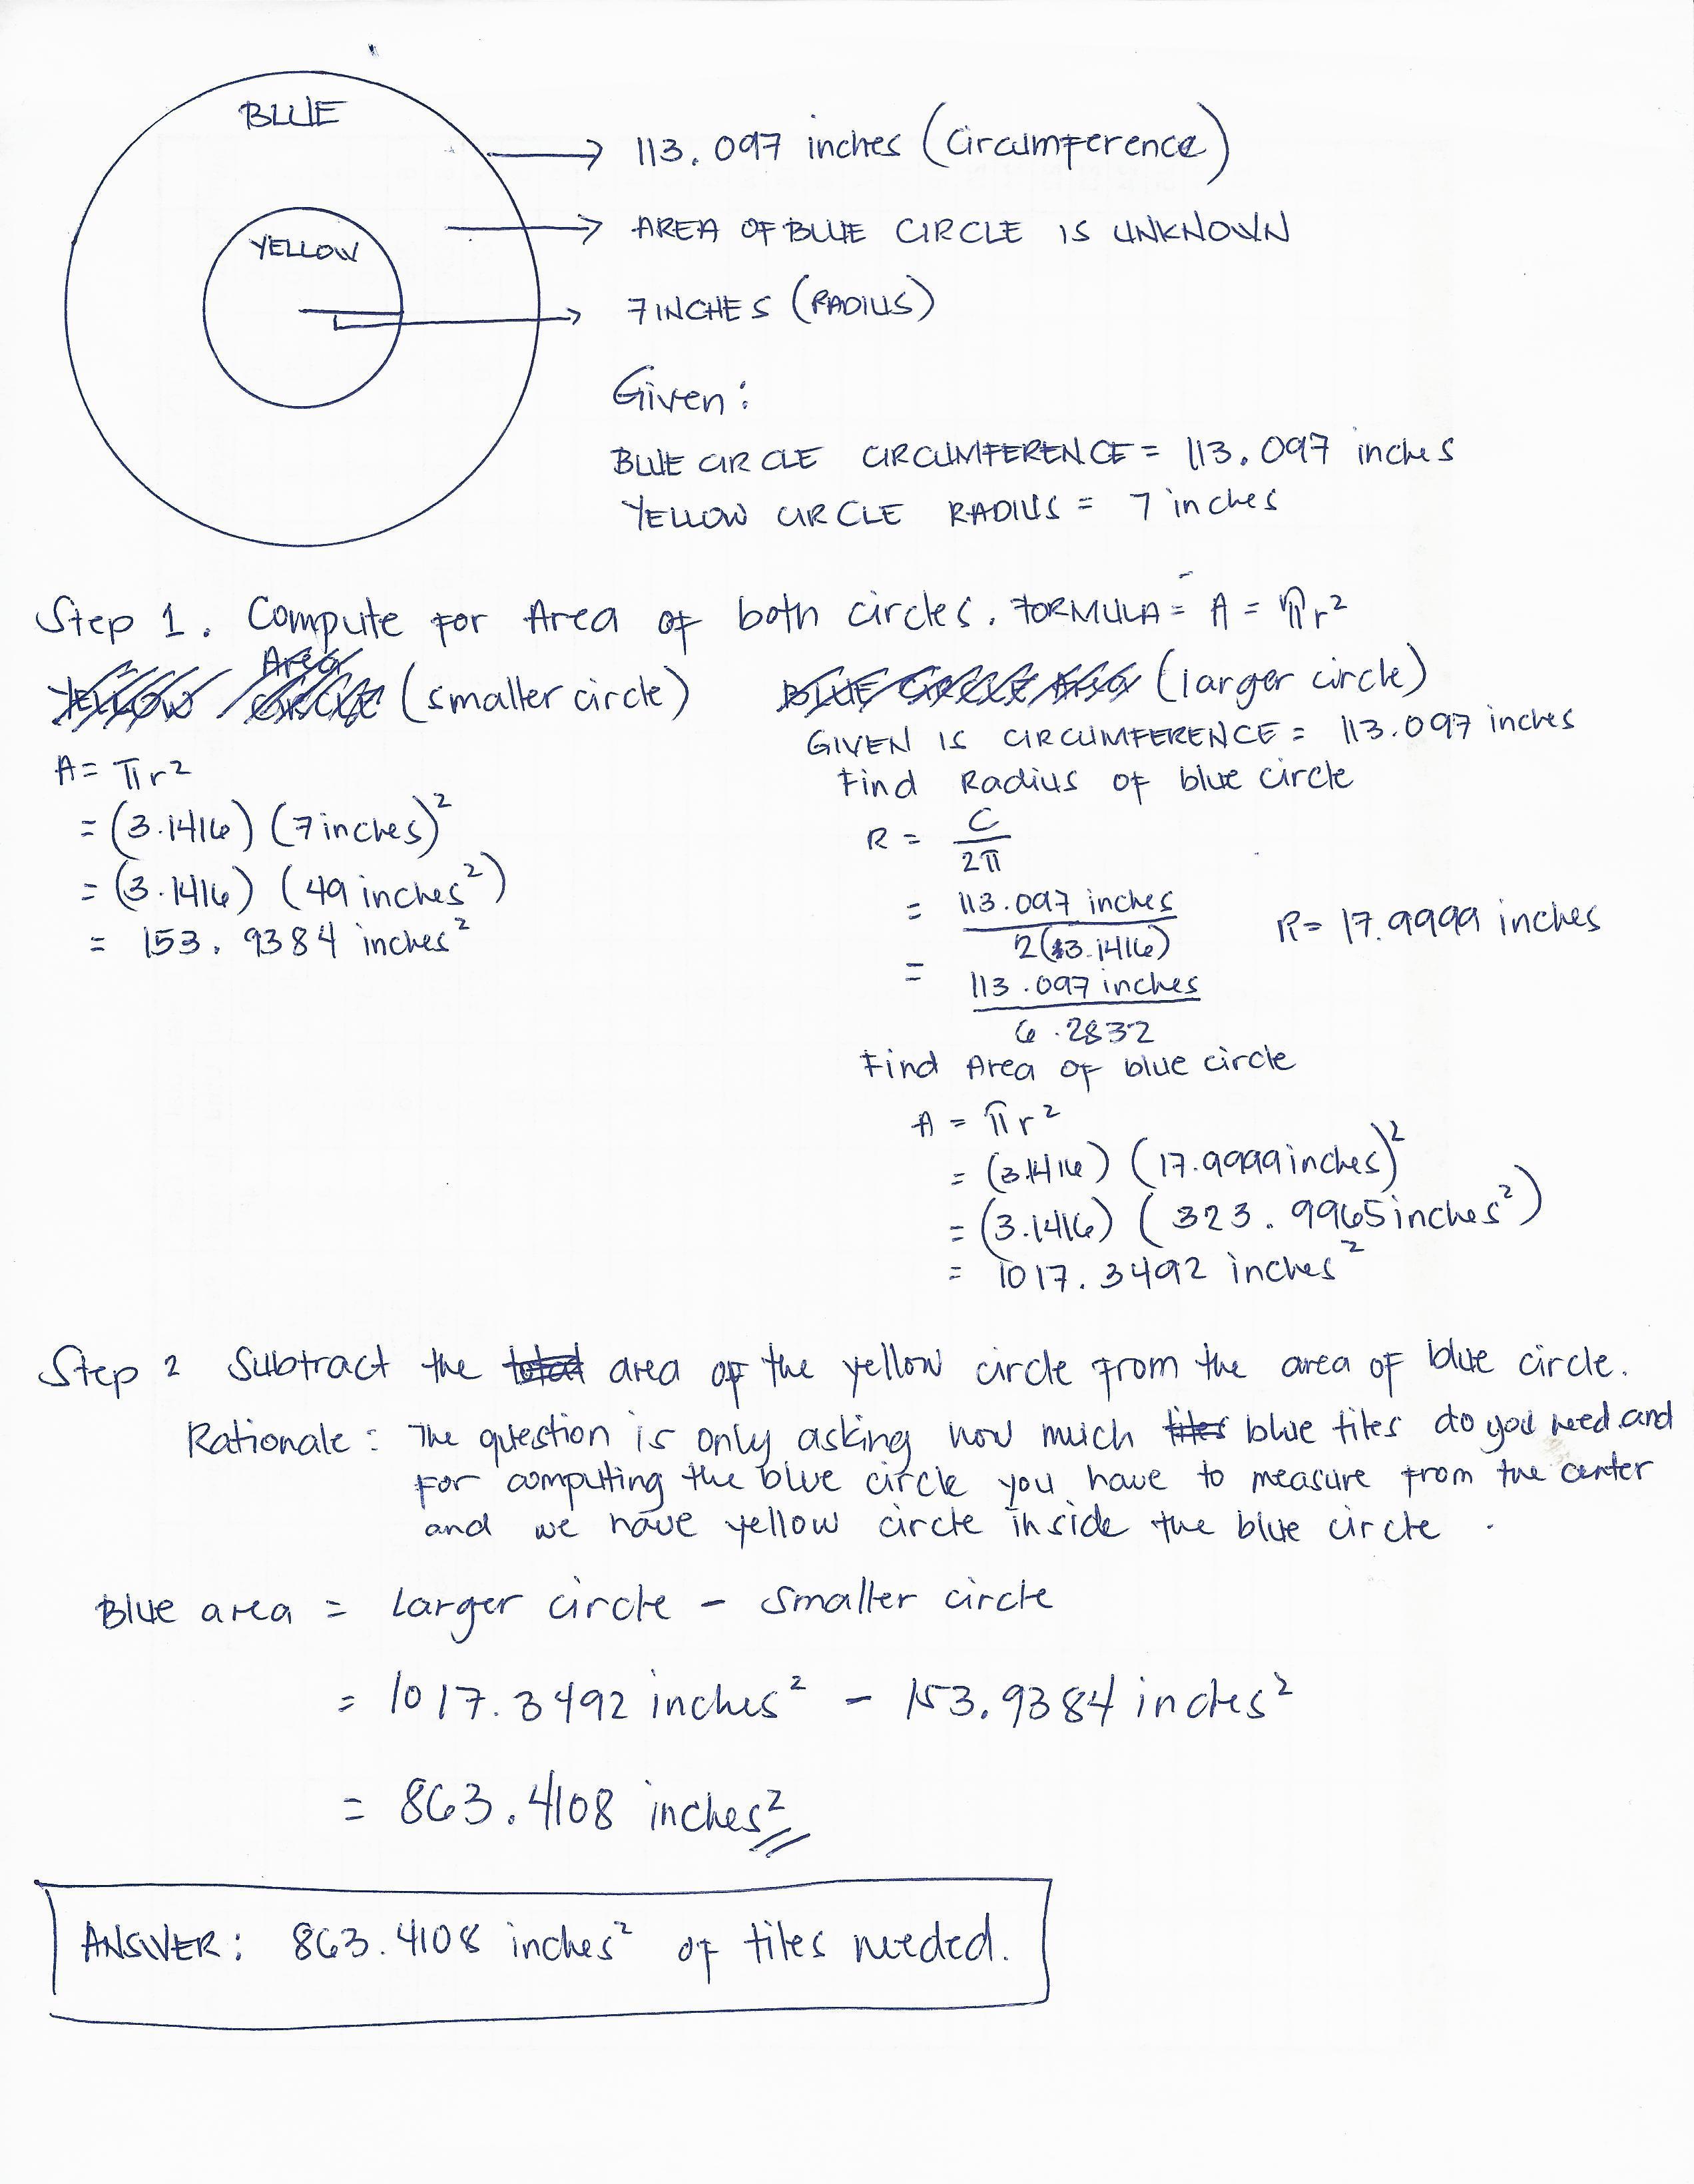 BLUE
113.097 inches (Circumference)
YELLOW
AREA OF BLUE CIRCLE IS UNKNOWN
7 INCHES (RADIUS)
Given:
BLUE CIRCLE CIRCUMFERENCE = 113.097 inches
YELLOW CIRCLE RADIUS = 7 inches
Step 1. Compute for Area of both circles. FORMULA = A = πr²
YELLOW Area CIRCLE (smaller circle)
A = πr²
= (3.1416) (7 inches)²
= (3.1416) (49 inches²)
= 153.9384 inches²
BLUE CIRCLE Area (larger circle)
GIVEN IS CIRCUMFERENCE = 113.097 inches
Find Radius of blue circle
R = C / 2π
= 113.097 inches / 2(3.1416)
R = 17.9999 inches
= 113.097 inches / 6.2832
Find Area of blue circle
A = πr²
= (3.1416) (17.9999 inches)²
= (3.1416) (323.9965 inches²)
= 1017.3492 inches²
Step 2 Subtract the total area of the yellow circle from the area of blue circle.
Rationale: The question is only asking how much tiles blue tiles do you need and
for computing the blue circle you have to measure from the center
and we have yellow circle inside the blue circle.
Blue area = Larger circle - smaller circle
= 1017.3492 inches² - 153.9384 inches²
= 863.4108 inches²
ANSWER: 863.4108 inches² of tiles needed.